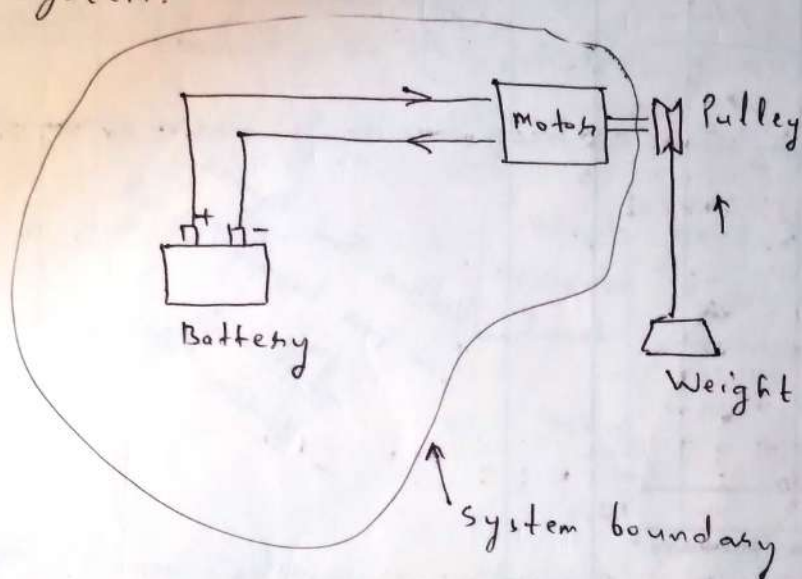 Motor
Pulley
+ -
Battery
Weight
System boundary